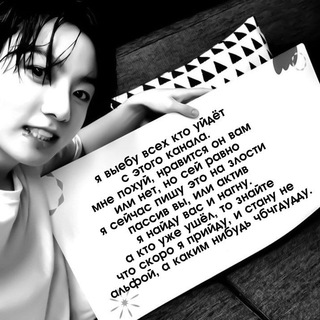 я выебу всех кто уйдёт
с этого канала.
мне похуй, нравится он вам
или нет, но сей равно
я сейчас пишу это на злости
пассив вы, или актив
я найду вас и нагну.
а кто уже ушёл, то знайте
что скоро я прийду, и стану не
альфой, а каким нибудь чбчгдуаду.